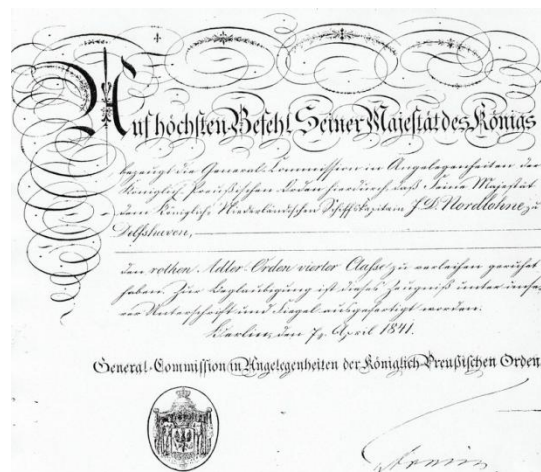 Auf höchsten Befehl Seiner Majestät des Königs
bezeugt die General-Commission in Angelegenheiten der
Königlich Preußischen Orden hierdurch, daß Seine Majestät
dem Königlich Niederländischen Schiffskapitain J. D. Nordlohne zu
Delfshaven,
den rothen Adler-Orden vierter Classe zu verleihen geruhet
haben. Zur Beglaubigung ist dieses Zeugniß unter unse-
rer Unterschrift und Siegel ausgefertigt worden.
Berlin, den 7. April 1841.
General-Commission in Angelegenheiten der Königlich Preußischen Orden